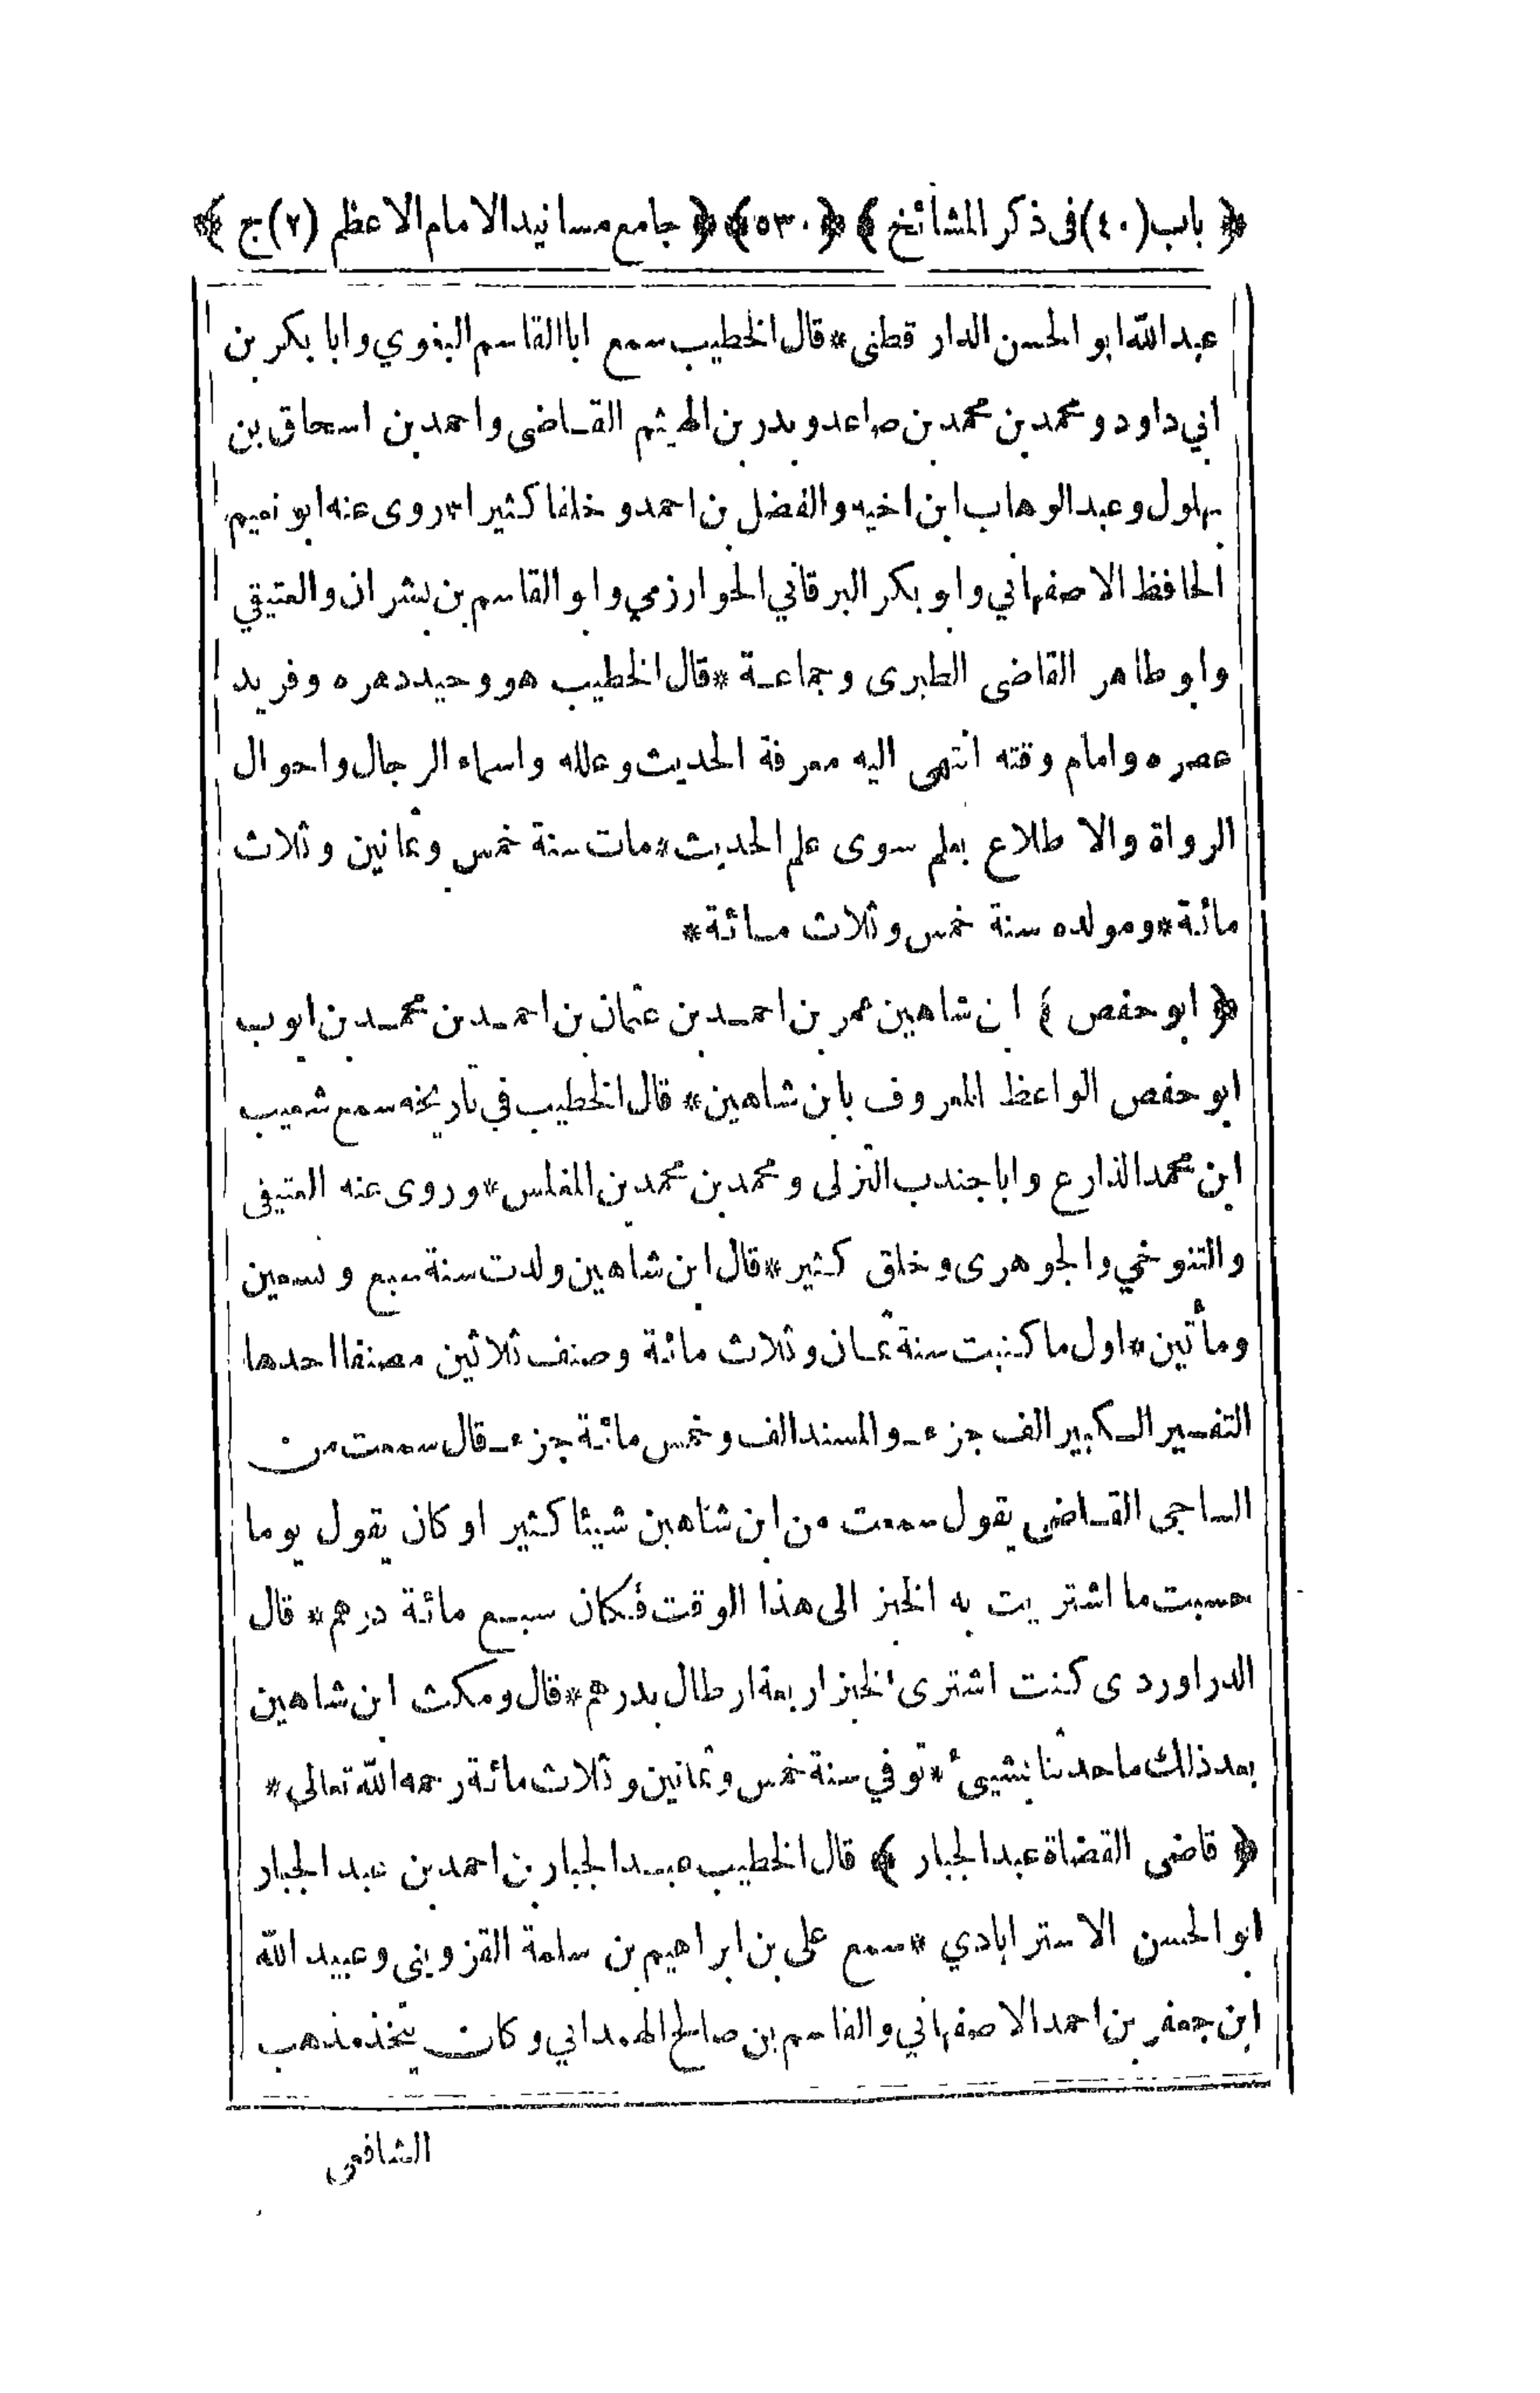 ﴿ باب (٤٠) فى ذكر المشائخ ﴾ ﴿ ٥٣٠ ﴾ ﴿ جامع مسانيد الامام الاعظم (٢) ج ﴾
عبد الله ابو الحسن الدار قطنى * قال الخطيب سمع ابا القاسم البغوي وابا بكر بن
ابي داود ومحمد بن محمد بن صاعد وبدر بن الهيثم القاضى واحمد بن اسحاق بن
بهلول وعبد الوهاب ابن اخيه والفضل بن احمد وخلقا كثيرا * روى عنه ابو نعيم
الحافظ الاصفهاني وابو بكر البرقاني الخوارزمي وابو القاسم بن بشران والعتيقي
وابو طاهر القاضى الطبرى وجماعة * قال الخطيب هو وحيد دهره وفريد
عصره وامام وقته انتهى اليه معرفة الحديث وعلله واسماء الرجال واحوال
الرواة والا طلاع بعلم سوى علم الحديث * مات سنة خمس وثمانين وثلاث
مائة * ومولده سنة خمس وثلاث مائة *
﴿ ابو حفص ﴾ ابن شاهين عمر بن احمد بن عثمان بن احمد بن محمد بن ايوب
ابو حفص الواعظ المعروف بابن شاهين * قال الخطيب في تاريخه سمع شعيب
ابن محمد الذارع وابا جندب النزلى ومحمد بن محمد بن المغلس * وروى عنه العتيقى
والتنوخي والجوهرى وخلق كثير * قال ابن شاهين ولدت سنة سبع وتسعين
ومأتين * اول ما كتبت سنة ثمان وثلاث مائة وصنف ثلاثين مصنفا احدها
التفسير الكبير الف جزء والمسند الف وخمس مائة جزء قال سمعت من
الساجى القاضى يقول سمعت من ابن شاهين شيئا كثير او كان يقول يوما
حسبت ما اشتريت به الخبز الى هذا الوقت فكان سبع مائة درهم * قال
الدراوردى كنت اشترى الخبز اربعة ارطال بدرهم * قال ومكث ابن شاهين
بعد ذلك ما حدثنا بشيئ * توفي سنة خمس وثمانين وثلاث مائة رحمه الله تعالى *
﴿ قاضى القضاة عبد الجبار ﴾ قال الخطيب عبد الجبار بن احمد بن عبد الجبار
ابو الحسن الاستر ابادي * سمع على بن ابراهيم بن سلمة القزوينى وعبيد الله
ابن جعفر بن احمد الاصفهاني والقاسم بن صالح الهمداني وكان يتخذ مذهب
الشافعى